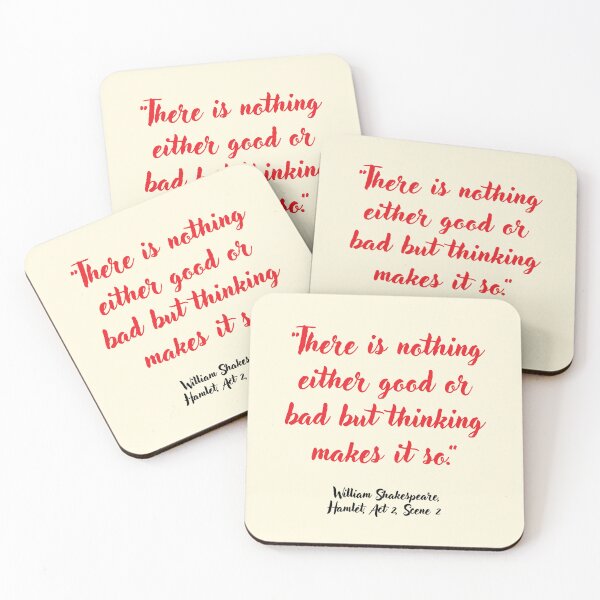 "There is nothing
either good or
bad but thinking
so."
"There is nothing
either good or
bad but thinking
makes it so."
"There is nothing
either good or
bad but thinking
makes it s
William Shakesp
Hamlet, Act 2,
"There is nothing
either good or
bad but thinking
makes it so."
William Shakespeare,
Hamlet, Act 2, Scene 2